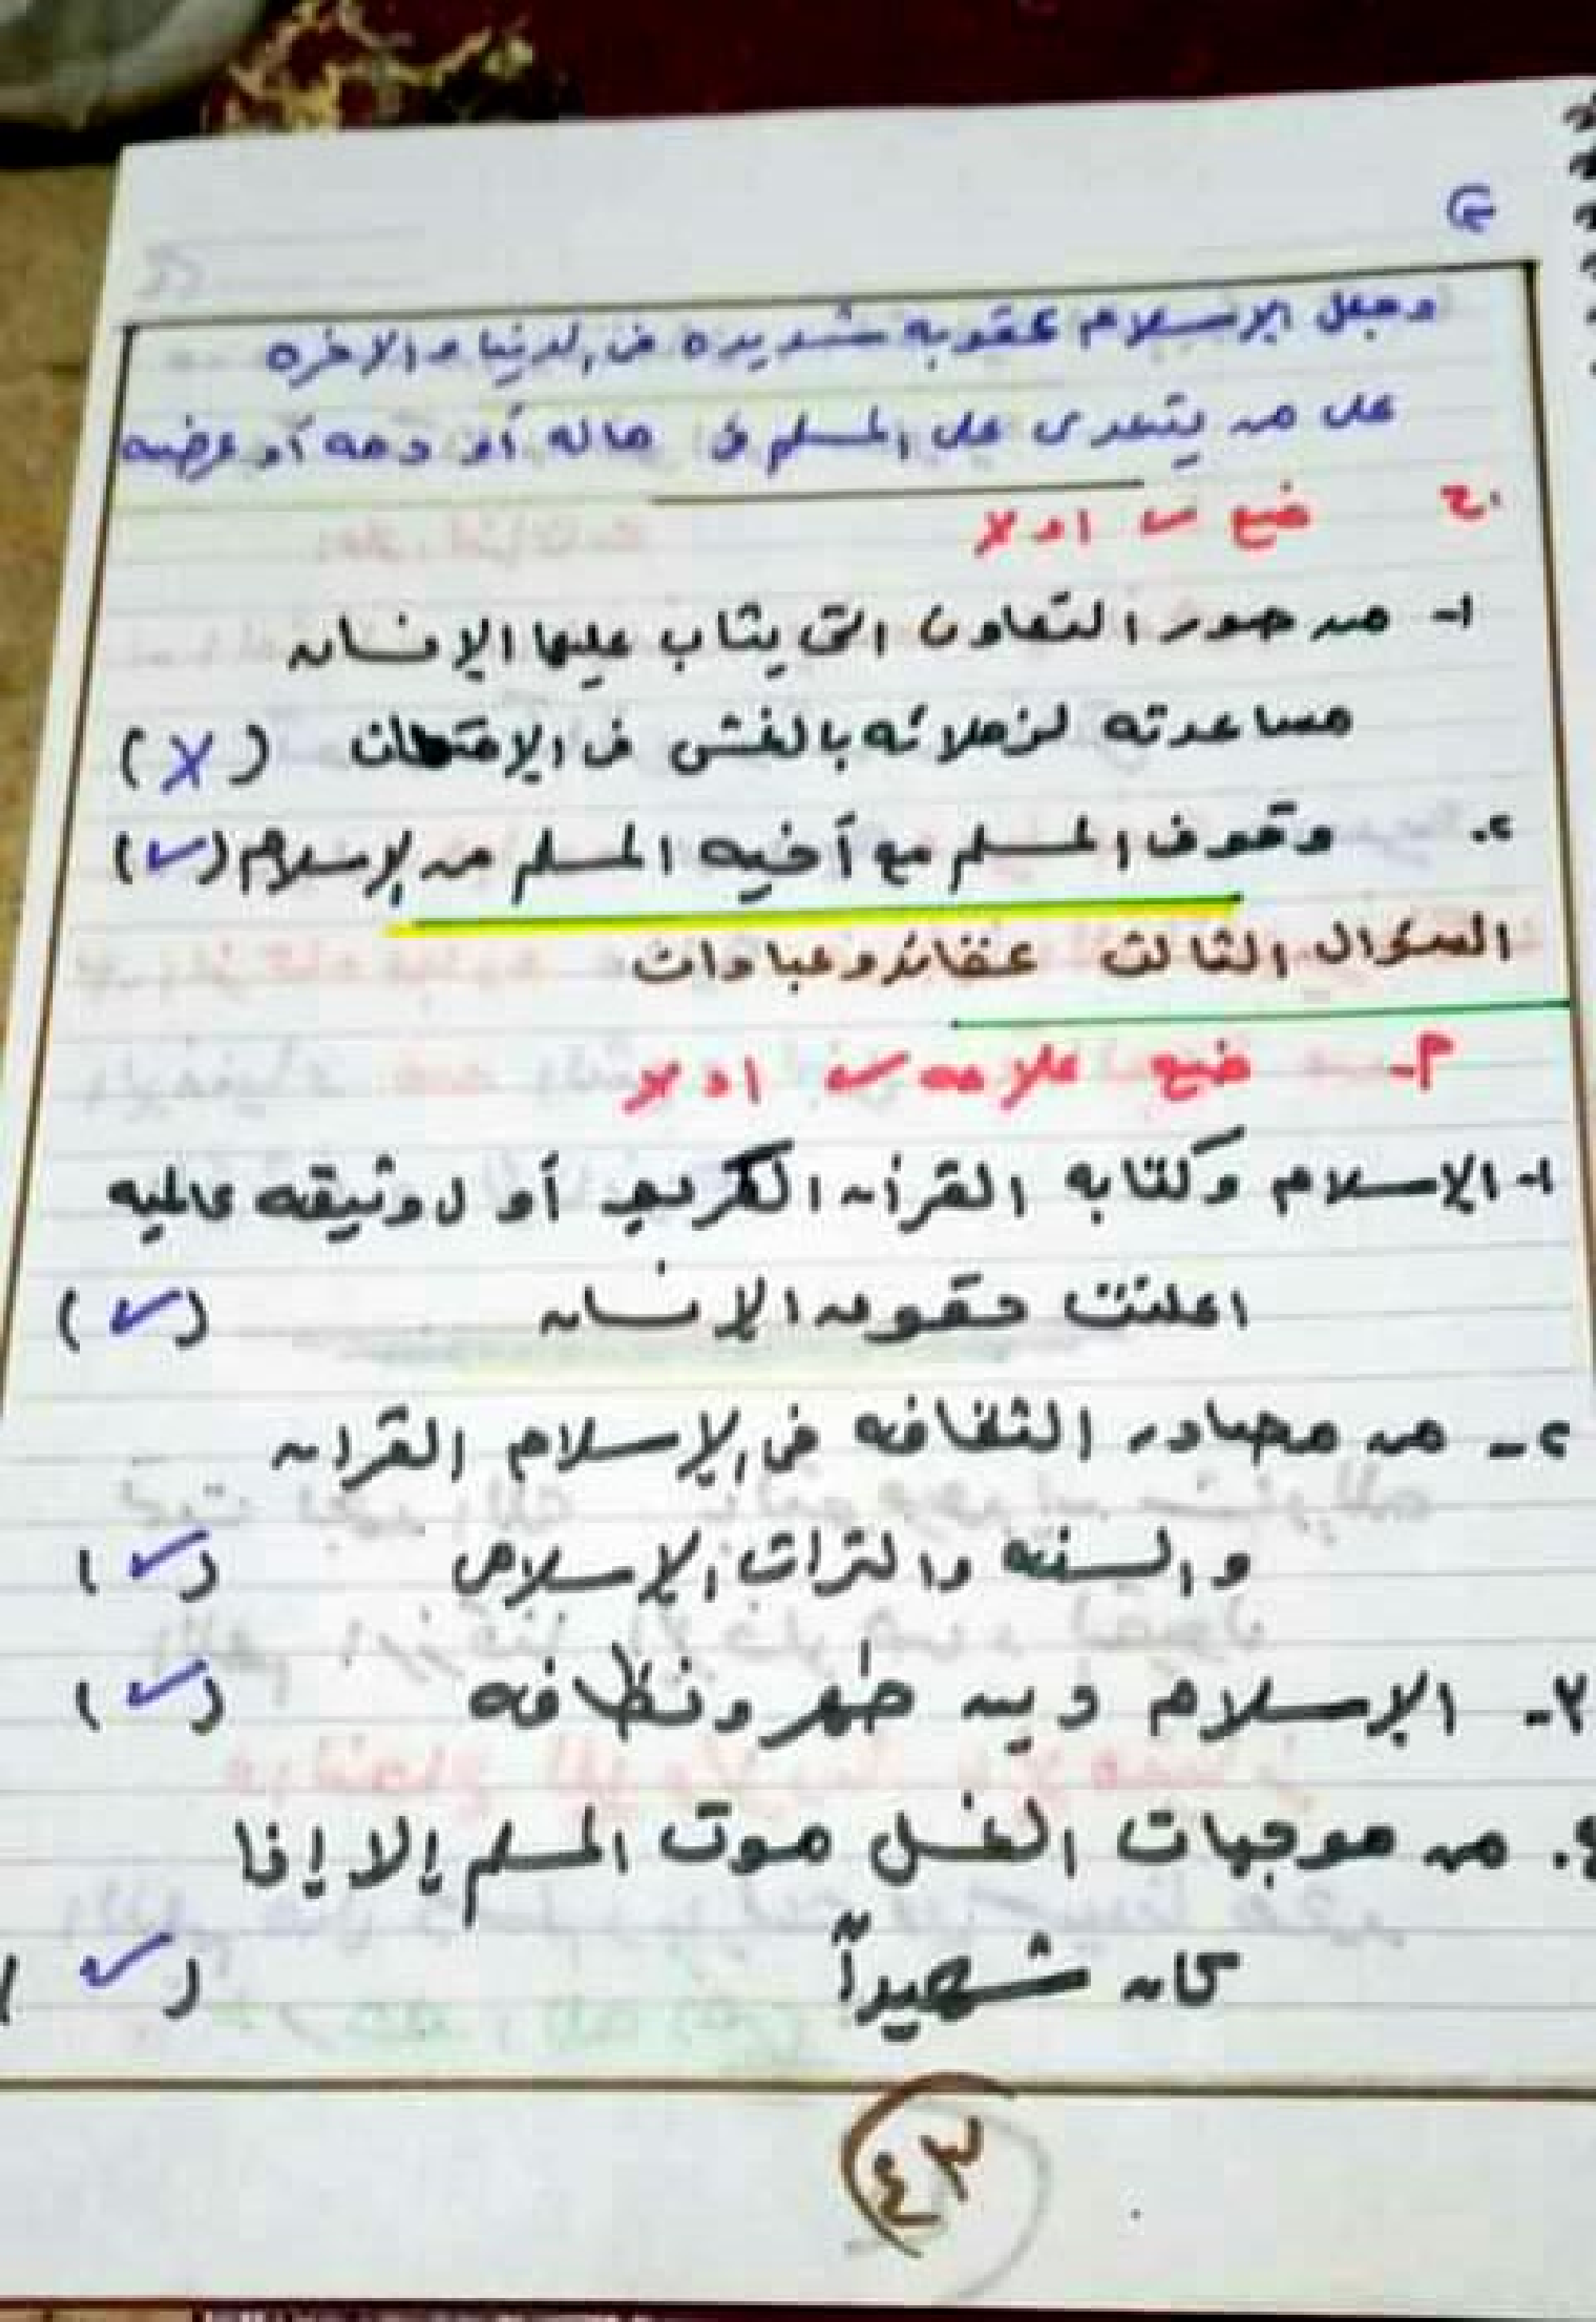 وجعل الإسلام عقوبه شديده فى الدنيا والاخره
على من يتعدى على المسلم فى ماله أو دمه أو عرضه
ج. ضع ✓ او ×
١- من صور التعاون التى يثاب عليها الإنسان
مساعدته لزملائه بالغش فى الإمتحان (×)
٢- وقوف المسلم مع أخيه المسلم من الإسلام (✓)
السؤال الثالث عقائد وعبادات
أ- ضع علامه ✓ او ×
١- الإسلام وكتابه القرآن الكريم أو ل وثيقه عالميه
اعلنت حقوق الإنسان (✓)
٢- من مصادر الثقافه فى الإسلام القران
والسنه والتراث الإسلامى (✓)
٣- الإسلام دين طهر ونظافه (✓)
٤. من موجبات الغسل موت المسلم إلا إذا
كان شهيداً (✓)
٤٣